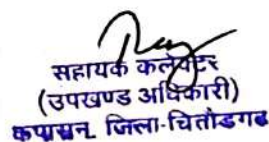 सहायक कलेक्टर
(उपखण्ड अधिकारी)
कपासन जिला-चितौडगढ